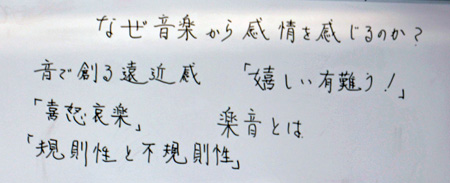 なぜ音楽から感情を感じるのか?
音で創る遠近感 「嬉しい有難う!」
「喜怒哀楽」 楽音とは
「規則性と不規則性」